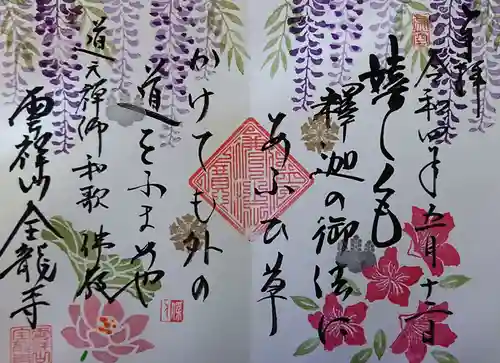 奉拝
令和四年五月十二日
嬉しくも
釋迦の御法に
あふひ草
かけても外の
道をふまめや
道元禅師和歌
雲祥山全龍寺